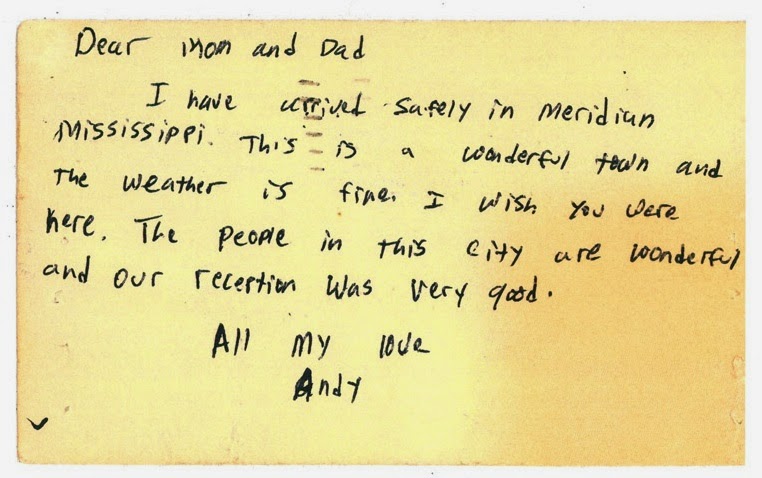 Dear Mom and Dad
I have arrived safely in Meridian
Mississippi. This is a wonderful town and
the weather is fine. I wish you were
here. The people in this city are wonderful
and our reception was very good.
All my love
Andy